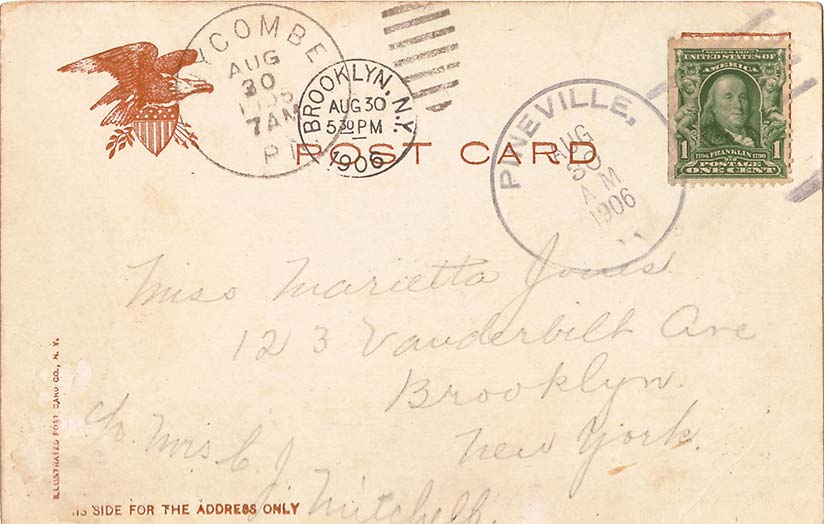 COMBE
AUG
30
1906
7AM
BROOKLYN, N.Y.
AUG 30
5 30 PM
1906
POST CARD
PINEVILLE,
AUG
30
AM
1906
SERIES 1902
UNITED STATES OF
AMERICA
1 1706 FRANKLIN 1790 1
POSTAGE
ONE CENT
Miss Marietta Jones
123 Vanderbilt Ave
Brooklyn.
New York.
c/o Mrs C J.
Mitchell.
ILLUSTRATED POST CARD CO., N. Y.
IS SIDE FOR THE ADDRESS ONLY